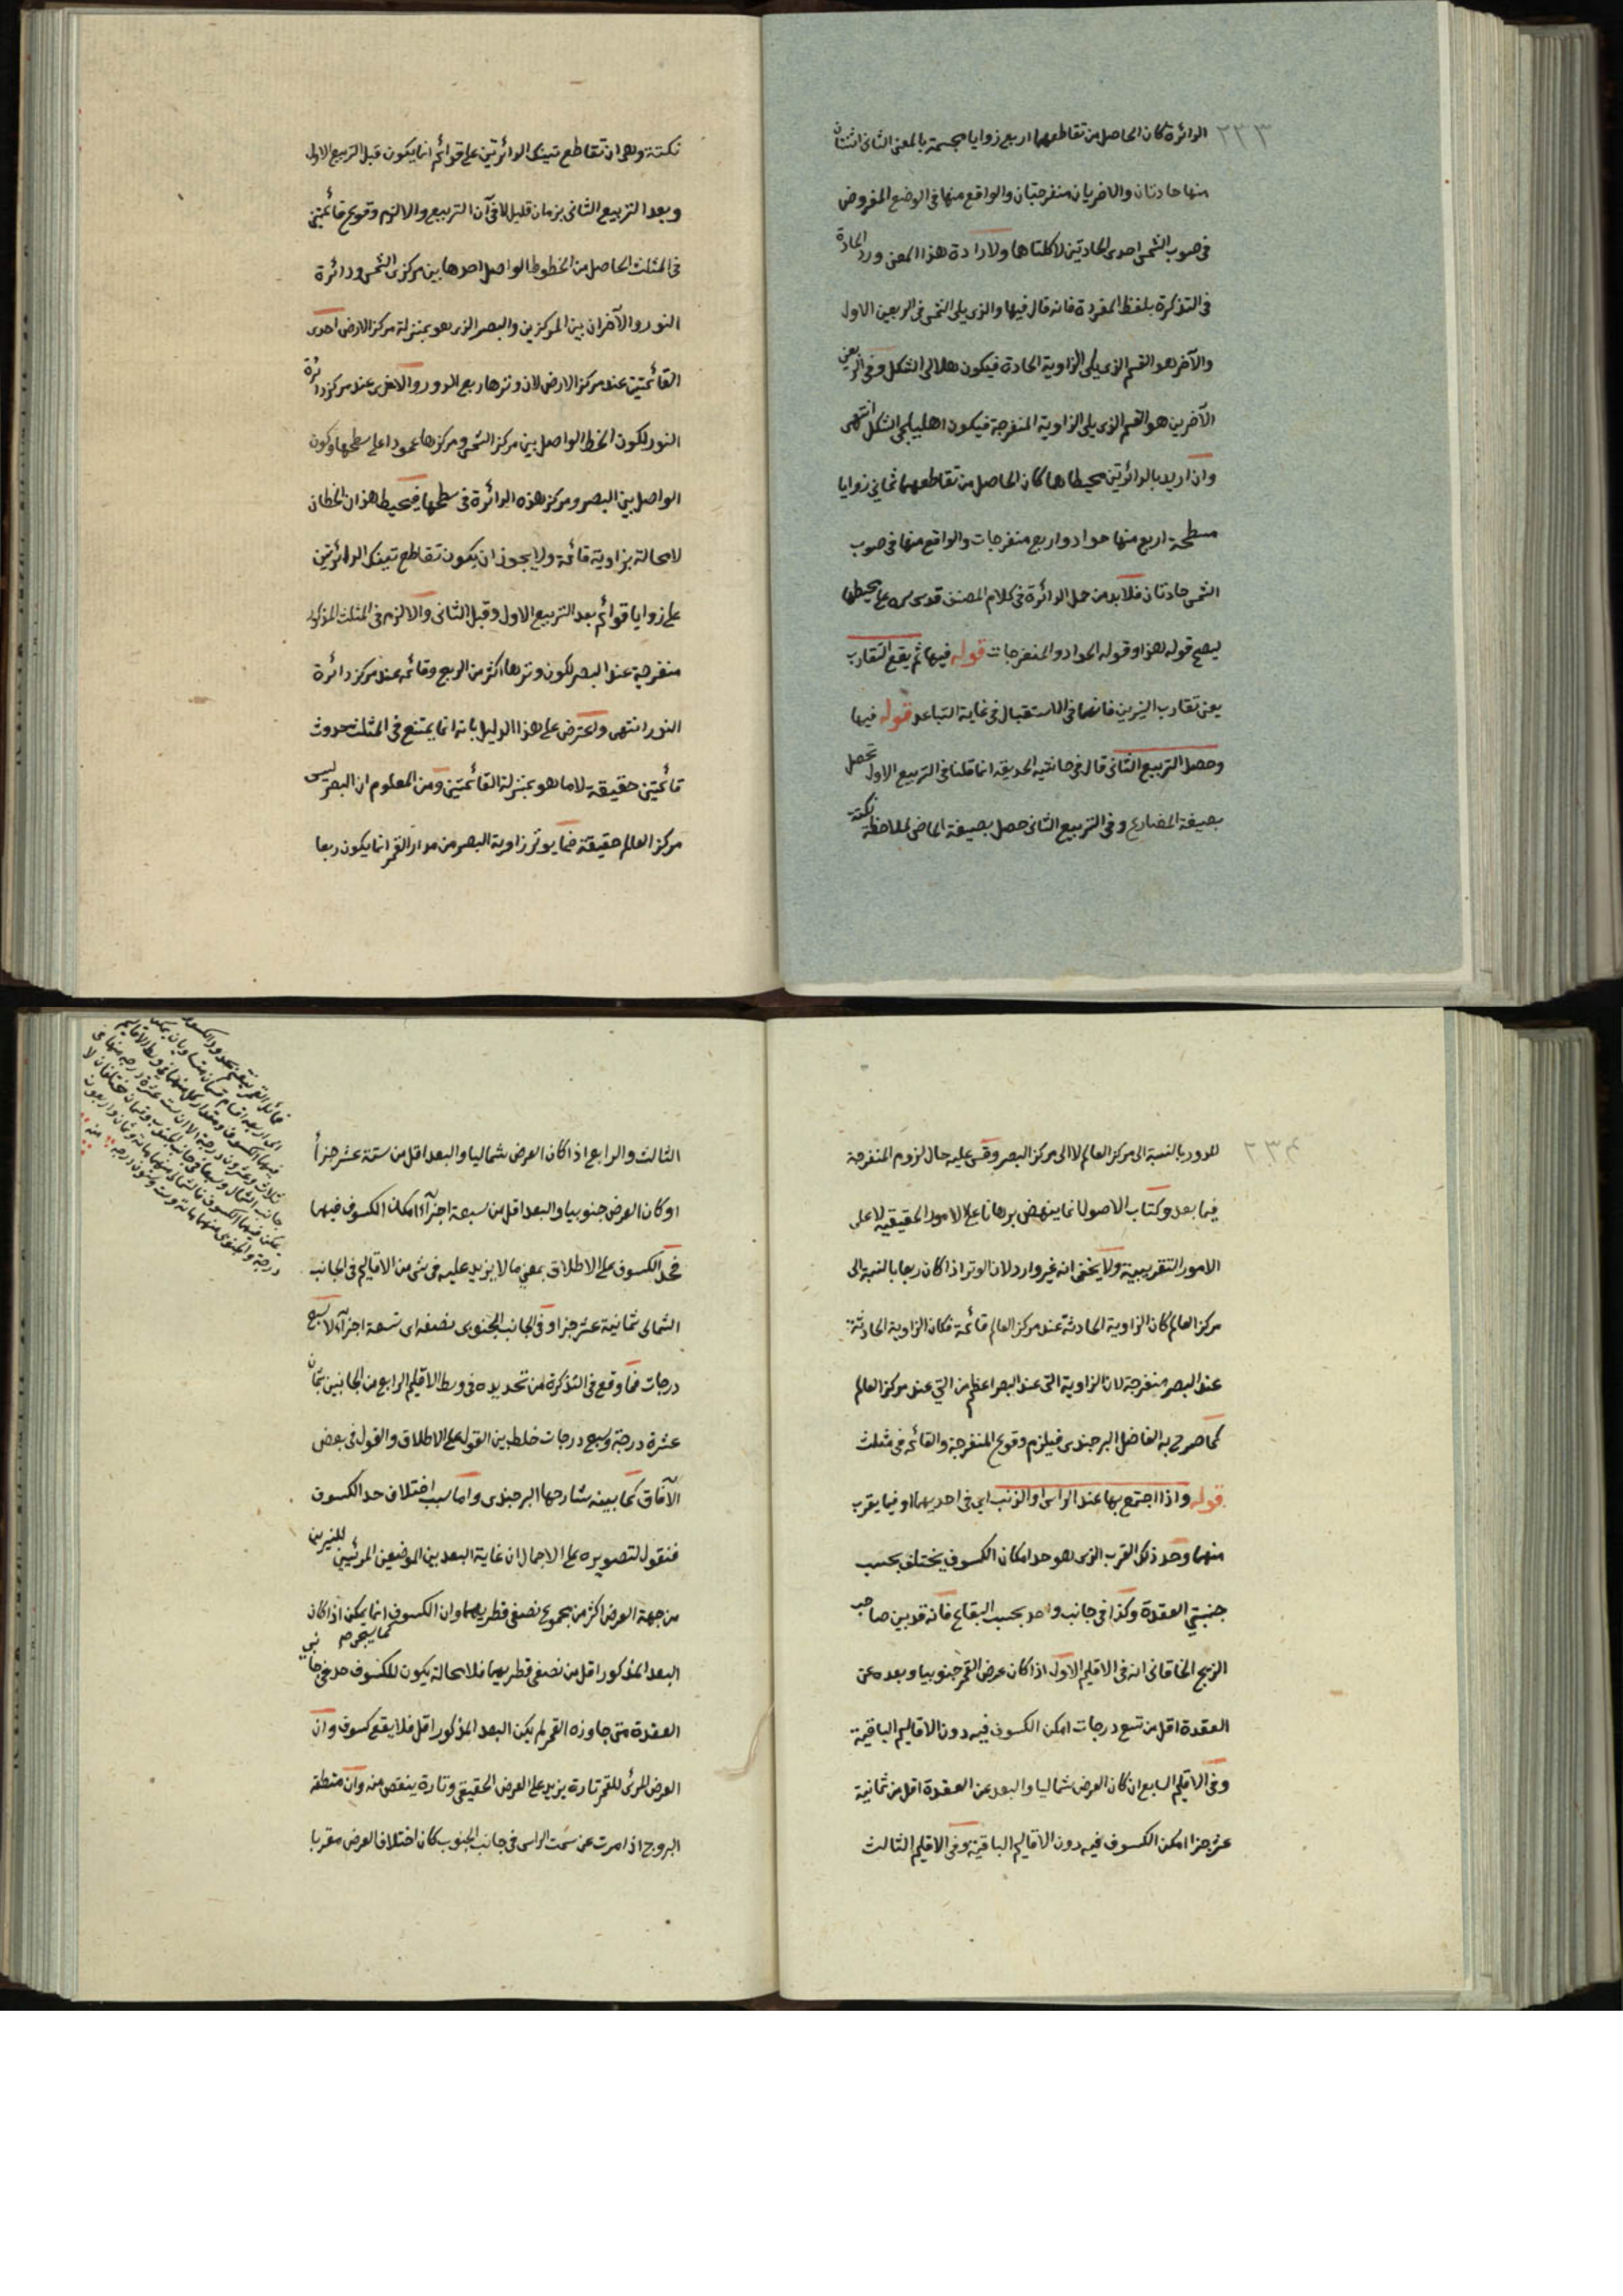 ٢٣٣
الدائرة كان الحاصل من تقاطعهما اربع زوايا مجسمة بالمعنى الثانى اثنتان
منها حادتان والاخريان منفرجتان والواقع منها فى الوضع المفروض
فى صوب الشمس احدى الحادتين لا كلتاها ولارادة هذا المعنى ورد الحادة
فى التذكرة بلفظ المفردة فانه قال فيها والذى يلى الشمس فى الربعين الاول
والآخر هو القسم الذى يلى الزاوية الحادة فيكون هلالى الشكل وفى الربعين
الآخرين هو القسم الذى يلى الزاوية المنفرجة فيكون اهليلجى الشكل انتهى
وان اريد بالدائرتين محيطاهما كان الحاصل من تقاطعهما ثمانى زوايا
مسطحة اربع منها حواد واربع منفرجات والواقع منها فى صوب
الشمس حادتان فلابد من حمل الدائرة فى كلام المصنف قدس سره على محيطها
ليصح قوله هذا وقوله الحواد والمنفرجات قوله فيها ثم يقع التقارب
يعنى تقارب النيرين فانهما فى الاستقبال فى غاية التباعد قوله فيها
وحصل التربيع الثانى قال فى حاشية الحديقة انما قلنا فى التربيع الاول تحصل
بصيغة المضارع وفى التربيع الثانى حصل بصيغة الماضى لملاحظة نكتة
نكتة وهى ان تقاطع تينك الدائرتين على قوائم انما يكون قبل التربيع الاول
وبعد التربيع الثانى بزمان قليل لا فى آن التربيع والا لزم وقوع قائمتين
فى المثلث الحاصل من الخطوط الواصل احدها بين مركزى الشمس ودائرة
النور والآخران بين المركزين والبصر الذى هو بمنزلة مركز الارض احدى
القائمتين عند مركز الارض لان وترها ربع الدور والاخرى عند مركز دائرة
النور لكون الخط الواصل بين مركز الشمس ومركزها عمودا على سطحها وكون
الواصل بين البصر ومركز هذه الدائرة فى سطحها فيحيط هذان الخطان
لا محالة بزاوية قائمة ولا يجوز ان يكون تقاطع تينك الدائرتين
على زوايا قوائم بعد التربيع الاول وقبل الثانى والا لزم فى المثلث المذكور
منفرجة عند البصر لكون وترها اكثر من الربع وقائمة عند مركز دائرة
النور انتهى واعترض على هذا الدليل بانه انما يمتنع فى المثلث حدوث
قائمتين حقيقة لا ما هو بمنزلة القائمتين ومن المعلوم ان البصر ليس
مركز العالم حقيقة فما يوتر زاوية البصر من مدار القمر انما يكون ربعا
٢٣٤
للدور بالنسبة الى مركز العالم لا الى مركز البصر وقس عليه حال لزوم المنفرجة
فيما بعد وكتاب الاصول انما ينهض برهانا على الامور الحقيقية لا على
الامور التقريبية ولا يخفى انه غير وارد لان الوتر اذا كان ربعا بالنسبة الى
مركز العالم كان الزاوية الحادثة عند مركز العالم قائمة فكان الزاوية الحادثة
عند البصر منفرجة لان الزاوية التى عند البصر اعظم من التى عند مركز العالم
كما صرح به الفاضل البرجندى فيلزم وقوع المنفرجة والقائمة فى مثلث
قوله واذا اجتمع بها عند الراس او الذنب اى فى احديهما او فيما يقرب
منهما وحد ذلك القرب الذى هو حد امكان الكسوف يختلف بحسب
جنبتى العقدة وكذا فى جانب واحد بحسب البقاع فانه قد بين صاحب
الزيج الخاقانى انه فى الاقليم الاول اذا كان عرض القمر جنوبيا وبعده عن
العقدة اقل من تسع درجات امكن الكسوف فيه دون الاقاليم الباقية
وفى الاقليم السابع ان كان العرض شماليا والبعد عن العقدة اقل من ثمانية
عشر جزا امكن الكسوف فيه دون الاقاليم الباقية وفى الاقليم الثالث
الثالث والرابع اذا كان العرض شماليا والبعد اقل من ستة عشر جزأ
او كان العرض جنوبيا والبعد اقل من سبعة اجزآء امكن الكسوف فيهما
فحد الكسوف على الاطلاق بمعنى ما لا يزيد عليه فى شئ من الاقاليم فى الجانب
الشمالى ثمانية عشر جزا وفى الجانب الجنوبى نصفه اى تسعة اجزآء لا سبع
درجات فما وقع فى التذكرة من تحديده فى وسط الاقليم الرابع من الجانبين بثمان
عشرة درجة وسبع درجات خلط بين القول على الاطلاق والقول فى بعض
الآفاق كما بينه شارحها البرجندى واما سبب اختلاف حد الكسوف
فنقول لتصويره على الاجمال ان غاية البعد بين الموضعين المرئيين للنيرين
من جهة العرض اكثر من مجموع نصفى قطريهما وان الكسوف انما يمكن اذا كان
البعد المذكور اقل من نصفى قطريهما فلا محالة يكون للكسوف حد فى جانبى
العقدة متى جاوزه القمر لم يكن البعد المذكور اقل فلا يقع كسوف وان
العرض المرئى للقمر تارة يزيد على العرض الحقيقى وتارة ينقص منه وان منطقة
البروج اذا مرت عن سمت الراس فى جانب الجنوب كان اختلاف العرض مقربا